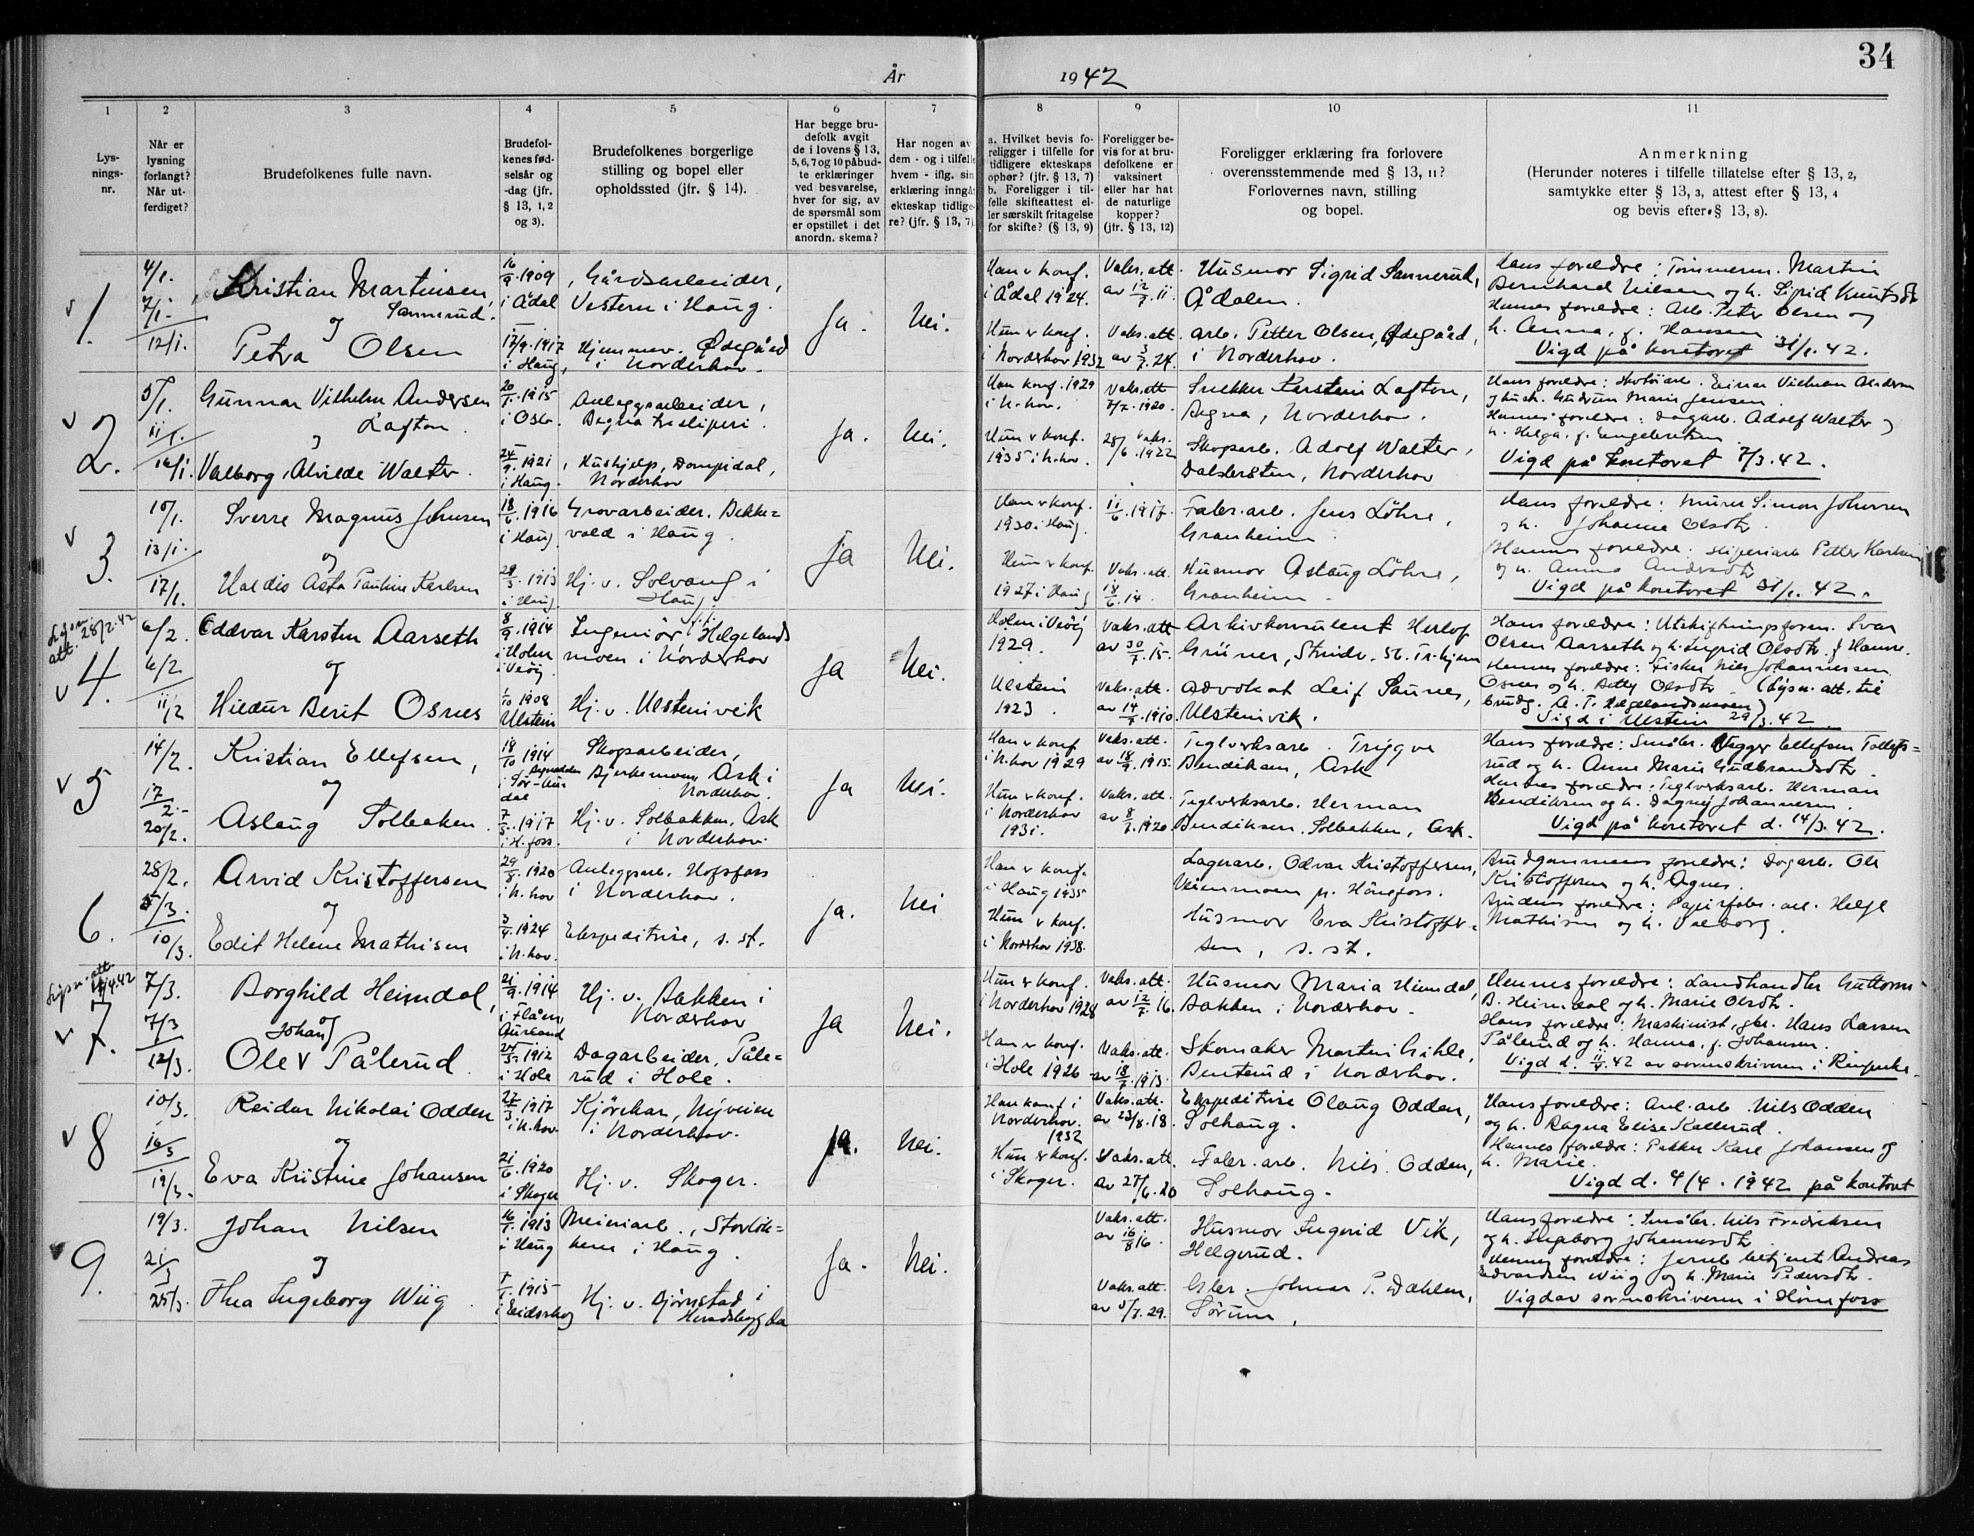 34
År 1942
1 2 3 4 5 6 7 8 9 10 11
Lys-
nings-
nr.
Når er
lysning
forlangt?
Når ut-
ferdiget?
Brudefolkenes fulle navn.
Brudefol-
kenes fød-
selsår og
-dag (jfr.
§ 13, 1, 2
og 3).
Brudefolkenes borgerlige
stilling og bopel eller
opholdssted (jfr. § 14).
Har begge bru-
defolk avgit
de i lovens § 13,
5, 6, 7 og 10 påbud-
te erklæringer
ved besvarelse,
hver for sig, av
de spørsmål som
er opstillet i det
anordn. skema?
Har nogen av
dem - og i tilfelle
hvem - iflg. sin
erklæring inngå
ekteskap tidlige-
re? (jfr. § 13, 7)
a. Hvilket bevis fo-
religger i tilfelle for
tidligere ekteskaps
ophør? (jfr. § 13, 7)
b. Foreligger i til-
felle skifteattest el-
ler særskilt fritagelse
for skifte? (§ 13, 9)
Foreligger be-
vis for at bru-
defolkene er
vaksinert
eller har hat
de naturlige
kopper?
(jfr. § 13, 12)
Foreligger erklæring fra forlovere
overensstemmende med § 13, 11?
Forlovernes navn, stilling
og bopel.
Anmerkning
(Herunder noteres i tilfelle tillatelse efter § 13, 2,
samtykke efter § 13, 3, attest efter § 13, 4
og bevis efter § 13, 8).
v 1.
4/1.
7/1.
12/1.
Kristian Martinsen
Sannerud.
og
Petra Olsen
16/9 1909
i Ådal
17/9 1917
i Haug
Gårdsarbeider,
Vestern i Haug.
Hjemmev. Ødegård
i Norderhov.
Ja.
Nei.
Han v konf.
i Ådal 1924.
Hun v konf.
i Norderhov 1932
Vaks. att.
av 12/7. 11.
Vaks. att.
av 3/7. 24.
Husmor Sigrid Sannerud,
Ådalen.
Arb. Petter Olsen, Ødegård,
i Norderhov.
Hans foreldre: Tømmerm. Martin
Bernhard Nilsen og h. Sigrid Knutsdtr
Hennes foreldre: Arb. Peter Olsen og
h. Anna, f. Hansen
Vigd på kontoret 31/1. 42.
v 2.
5/1.
11/1.
16/1.
Gunnar Vilhelm Andersen
Lafton.
og
Valborg Alvilde Walter.
20/1 1915
i Oslo.
24/9 1921
i Haug.
Anleggsarbeider,
Begna tresliperi.
Hushjelp, Dompidal,
Norderhov
Ja.
Nei.
Han konf. 1929
i N.hov.
Hun v konf.
1935 i N.hov.
Vaks. att.
7/7. 1920.
Vaks.
28/6. 1922
Snekker Karstein Lafton,
Begna, Norderhov.
Skoparb. Adolf Walter,
Dalsbråten, Norderhov
Einar Vilhelm Andersen
og hust. Gudrun Marie Jensen
Hennes foreldre: dagarb. Adolf Walter og
h. Helga, f. Engebretsen
Vigd på kontoret 7/3. 42.
v 3.
10/1.
13/1.
17/1.
Sverre Magnus Johnsen
og
Haldis Asta Pauline Karlsen
18/6. 1916
i Haug
29/3. 1913
i Haug
Grovarbeider. Bekke-
vold i Haug.
Hj. v. Solvang i
Haug.
Ja
Nei.
Han v konf.
1930 i Haug
Hun v konf.
1927 i Haug
11/6. 1917.
Vaks. att.
18/6. 14.
Fabr. arb. Jens Löhre,
Granheim.
Husmor Aslaug Löhre,
Granheim.
Hans foreldre: murer Simon Johnsen
og h. Johanne Olsdtr.
Hennes foreldre: sliperiarb Petter Karlsen
og h. Anna Andersdtr
Vigd på kontoret 31/1. 42.
Lysn. att. 28/2. 42
v 4.
6/2.
6/2
11/2
Oddvar Karsten Aarseth
og
Hildur Berit Osnes
8/9. 1914
i Holm
i Veøy
1/10 1908
Ulstein
Ingeniör, Helgelands
moen i Norderhov
Hj. v. Ulsteinvik
Ja
Nei.
Holm i Veöy
1929.
Ulstein
1923.
Vaks. att
av 30/7. 15.
Vaks. att.
av 14/7. 1910.
Arkivkonsulent Herlof
Grüner, Strinda. st. Tr.hjem
Advokat Leif Saunes,
Ulsteinvik.
Hans foreldre: Utskiftningsform. Ivar
Olsen Aarseth og h. Ingrid Olsdtr. f Hamre.
Hennes foreldre: Fisker Nils Johannessen
Osnes og h. Betty Olsdtr. (Lysn. att. til
brudg. A. T. Helgelandsmoen)
Vigd i Ulstein 29/3. 42
v 5
14/2.
17/2.-
20/2.
Kristian Ellefsen,
og
Aslaug Solbakken.
18/10 1914
i Sør-Aur-
dal
7/5. 1917
i H.foss.
Skogsarbeider,
Bjerkemoen, Ask i
Norderhov.
Hj. v. Solbakken, Ask
i Norderhov.
Ja
Nei.
Han v konf
i N.hov 1929
Hun v konf.
i Norderhov
1931.
Vaks. att.
av 18/9. 1915.
Vaks. att.
av 8/7. 1920.
Teglverksarb. Trygve
Bendiksen, Ask
Teglverksarb. Herman
Bendiksen, Solbakken, Ask.
Hans foreldre: Småbr. Vegger Ellefsen Tollefs-
rud og h. Anne Marie Gudbrandsdtr.
Hennes foreldre: Teglverksarb. Herman
Bendiksen og h. Dagny Johannesen.
Vigd på kontoret d. 14/3. 42.
6.
28/2.
5/3.
10/3.
Arvid Kristoffersen
og
Edit Helene Mathisen
29/8. 1920
i N.hov
3/4. 1924
i N.hov.
Anleggsarb. Hofsfoss
i Norderhov.
Ekspeditrise, s. st.
Ja.
Nei
Han v konf.
i Haug 1935
Hun v konf.
i Norderhov 1938.
Lagerarb. Odvar Kristoffersen,
Veienmoen pr. Hönefoss.
Husmor Eva Kristoffer-
sen, s. st.
Brudgommens foreldre: Dagarb. Ole
Kristoffersen og h. Agnes.
Brudens foreldre: Papirfabr. arb. Helge
Mathisen og h. Valborg.
Lysn. att. 11/4. 42
v 7.
7/3.
7/3
12/3.
Borghild Heimdal,
og
Johan
Ole v Pålerud
21/9. 1914
i Flåm
Aurland
1912
i Hole
Hj. v. Bakken i
Norderhov
Dagarbeider, Påle-
rud i Hole.
Ja
Nei.
Hun v konf.
i Norderhov 1928
Han v konf.
i Hole 1926
Vaks. att.
av 12/7. 16.
Vaks. att.
av 18/7. 1913.
Husmor Maria Heimdal,
Bakken i Norderhov.
Skomaker Martin Gihle,
Benterud i Norderhov.
Hennes foreldre: Landhandler Guttorm
B. Heimdal og h. Marie Olsdtr.
Hans foreldre: Maskinist, gbr. Hans Larsen
Pålerud og h. Hanna, f. Johansen.
Vigd d. 11/4. 42 av sorenskriveren i Ringerike.
v 8
10/3.
16/3
19/3.
Reidar Nikolai Odden
og
Eva Kristine Johansen
27/3. 1917
i N.hov.
21/6. 1920
i Skoger
Kjörekar, Nyveien
i Norderhov.
Hj. v. Skoger.
Ja.
Nei.
Han konf i
Norderhov.
1932
Hun v konf.
i Skoger.
Vaks. att.
av 23/8. 18.
Vaks. att.
av 27/6. 20
Ekspeditrise Olaug Odden,
Solhaug.
Fabr. arb. Nils Odden,
Solhaug.
Hans foreldre: Anl. arb. Nils Odden
og h. Ragna Elise Kallerud.
Hennes foreldre: Pakker Karl Johansen og
h. Marie.
Vigd d. 4/4. 1942 på kontoret
v 9.
19/3.
21/3
25/3.
Johan Nilsen
og
Thea Ingeborg Wiig
16/1. 1913
i Haug
1915
i Eidsskog
Meieriarb., Storlök-
ken i Haug.
Hj. v. Bjørnstad i
Heradsbygda
Ja.
Nei.
Vaks. att.
av 16/8 16.
Vaks. att.
av 5/7. 29.
Husmor Ingerid Vik,
Helgerud.
Johnar P. Dæhlen,
Sørum,
Hans foreldre: Småbr. Nils Fredriksen
og h. Ingeborg Johannesdtr
Hennes foreldre: Jernb. betjent Andreas
Edvardsen Wiig og h. Marie Pedersdtr.
Vigd av sorenskriveren i Hönefoss